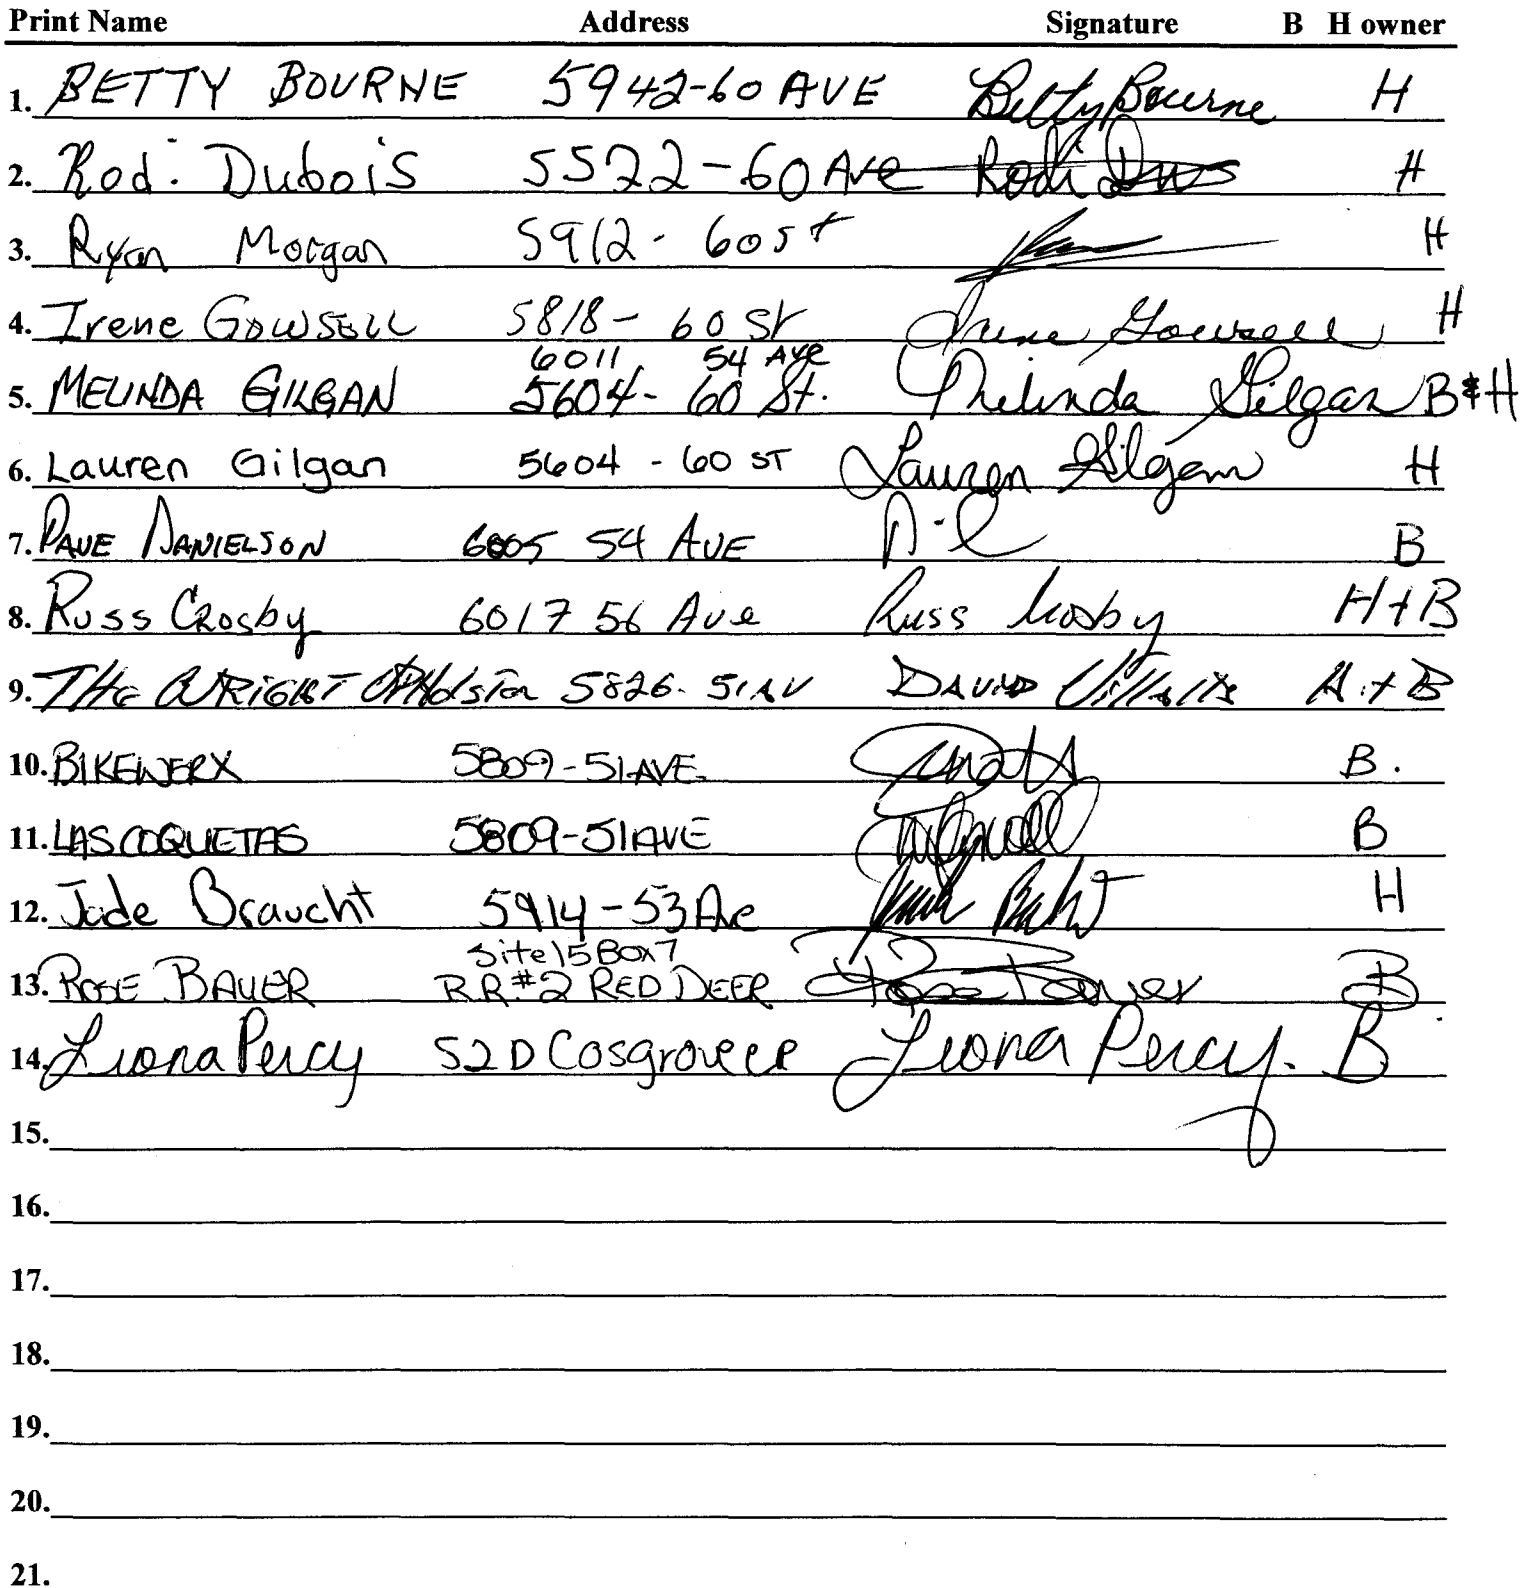 Print Name Address Signature B H owner
1. BETTY BOURNE 5942-60 AVE Betty Bourne H
2. Rod. Dubois 5522-60 Ave Rod H
3. Ryan Morgan 5912-60 st H
4. Irene Gowsell 5818-60 St Irene Gowsell H
6011 54 Ave
5. MELINDA GILGAN 5604-60 St. Melinda Gilgan B & H
6. Lauren Gilgan 5604-60 ST Lauren Gilgan H
7. DAVE DANIELSON 6005 54 AVE B
8. Russ Crosby 6017 56 Ave Russ Crosby H+B
9. THE WRIGHT 5826-51 AV DAVID H+B
10. BIKEWERX 5809-51 AVE. B.
11. LAS COQUETAS 5809-51 AVE B
12. Jade Braucht 5914-53 Ave H
Site 15 Box 7
13. ROSE BAUER R.R.#2 RED DEER Rose Bauer B
14. Liona Percy 52 D Cosgrove Liona Percy. B
15.
16.
17.
18.
19.
20.
21.